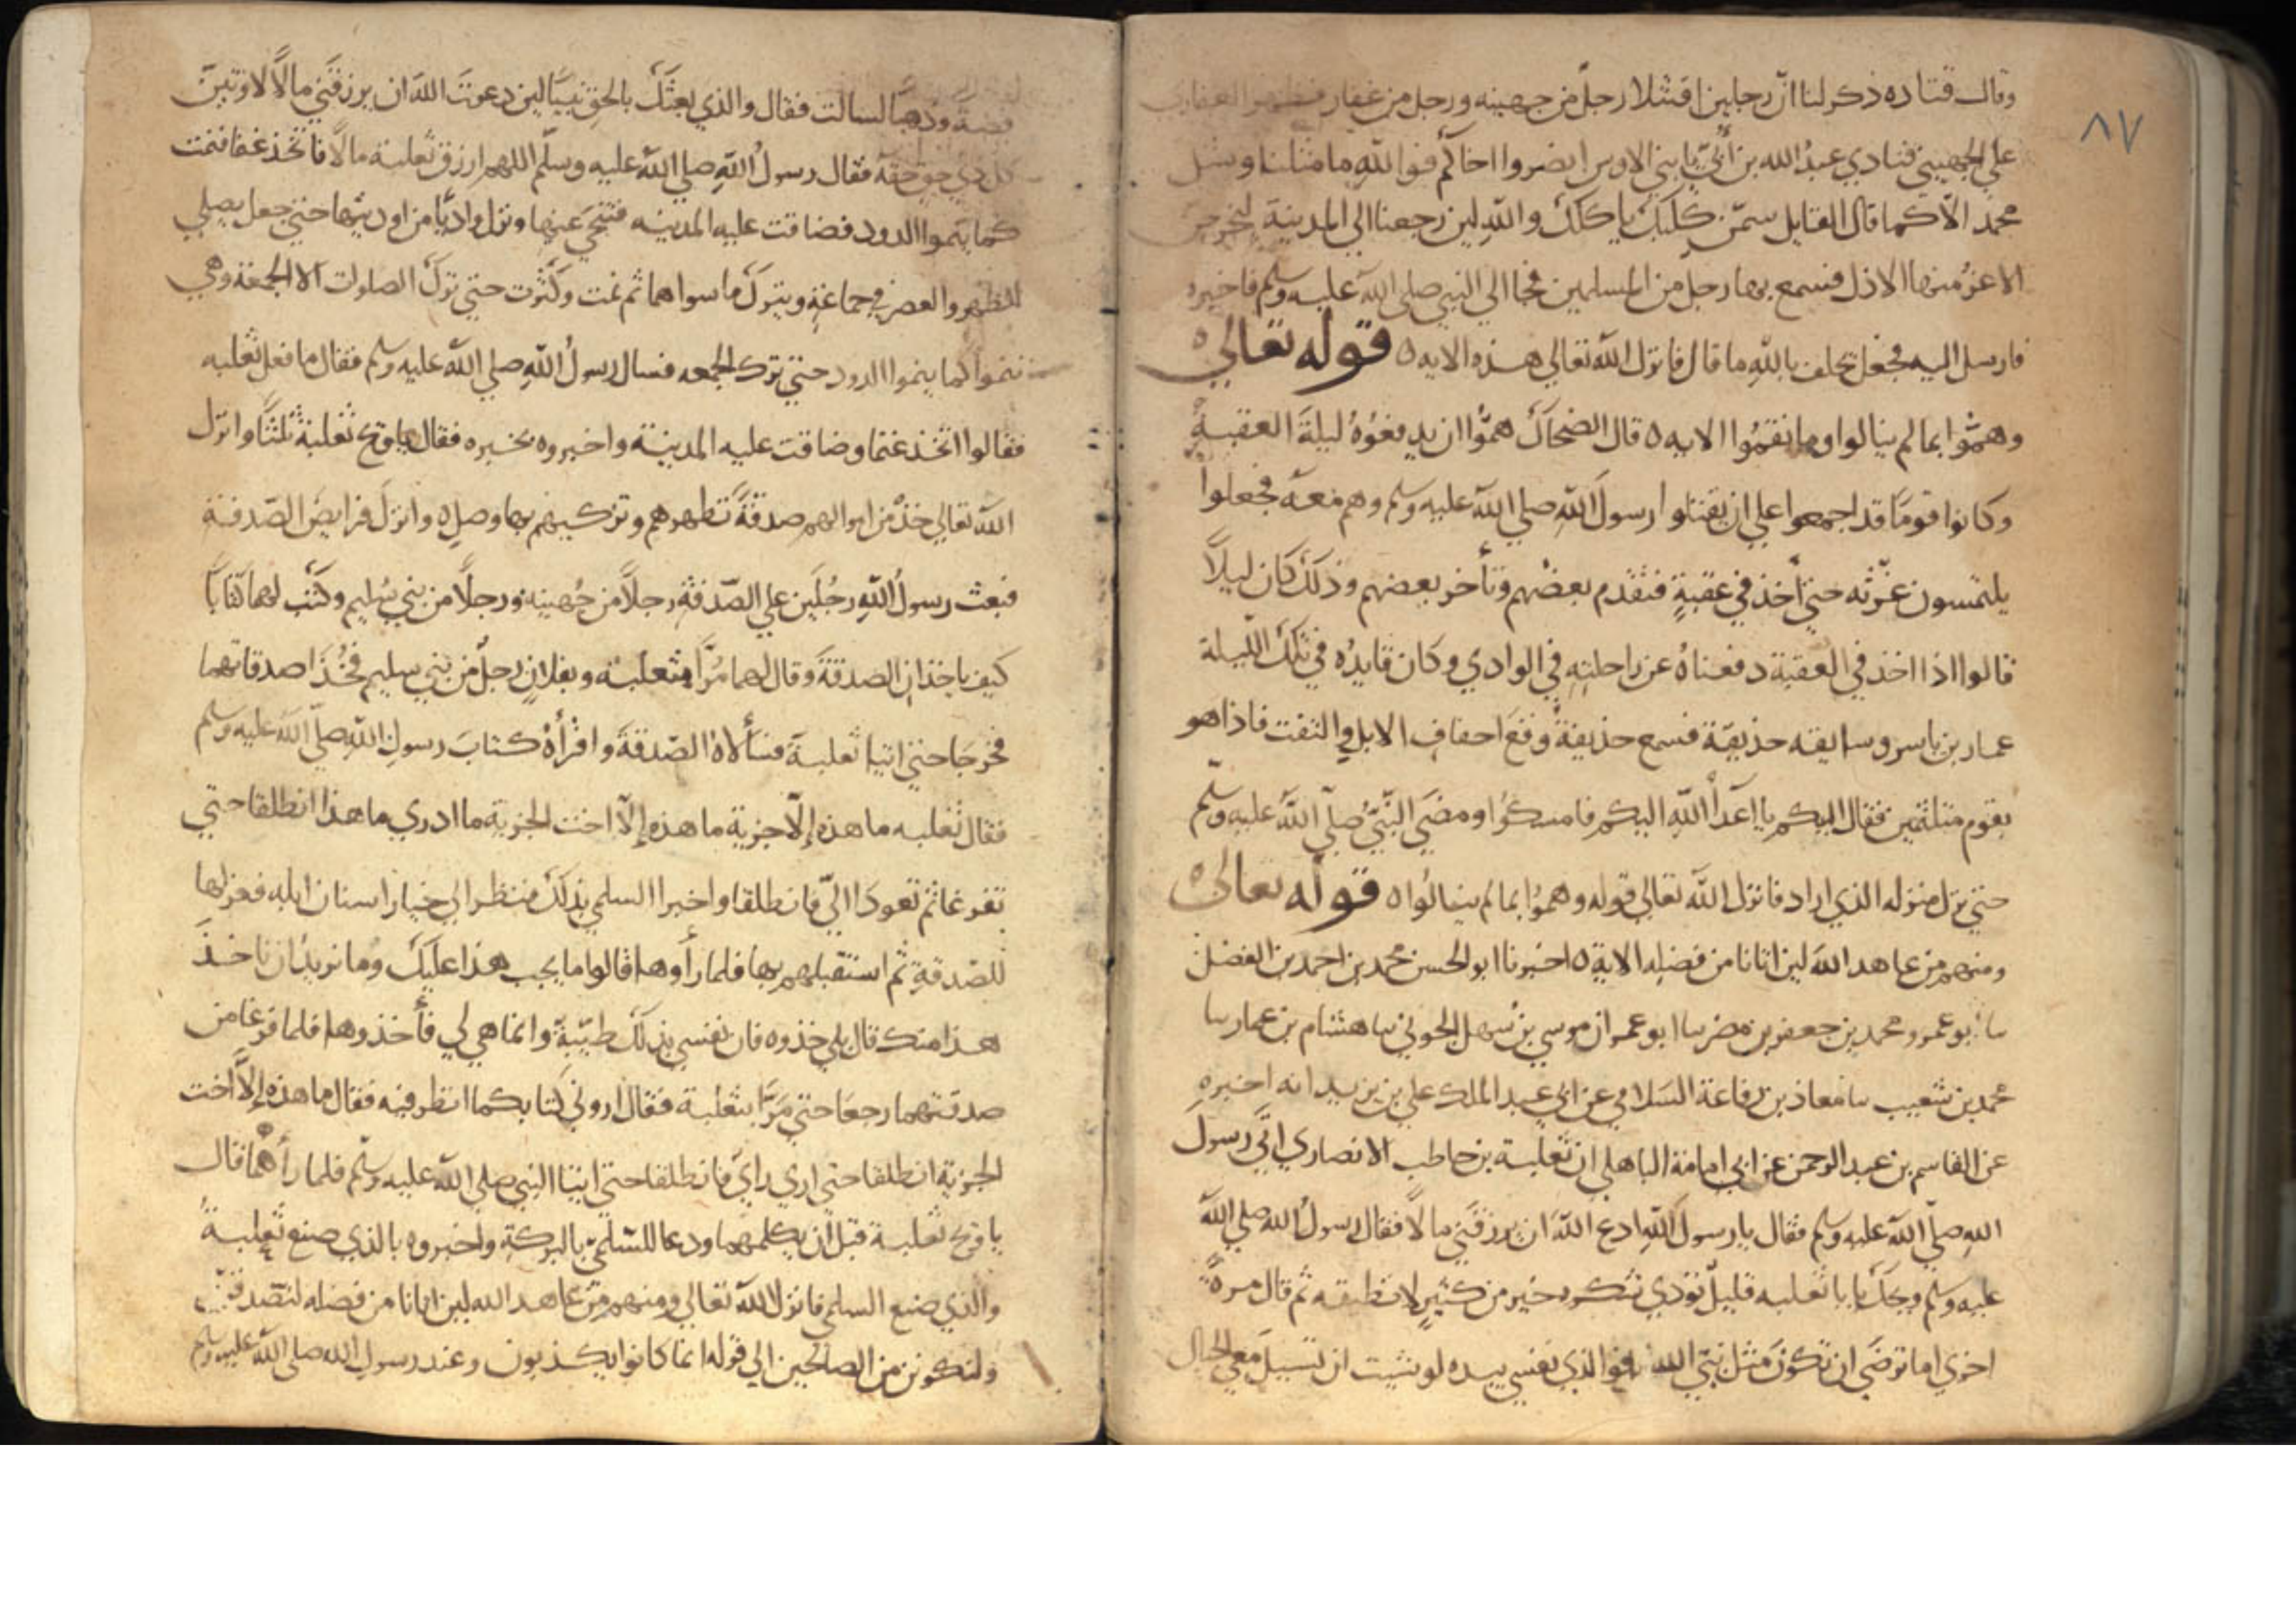 ٨٧
وقال قتاده ذكر لنا انّ رجلين اقتتلا رجلٌ من جهينه ورجل من غفار فظهر الغفاري
علي الجهيني فنادي عبدُ الله بن أُبيّ يا بني الاوس انصروا اخاكم فوالله ما مثلنا ومثل
محمد الّا كما قال القايل سمّن كلبك ياكلك والله لين رجعنا الي المدينة ليخرجن
الاعزُ منها الاذل فسمع بها رجل من المسلمين فجا الي النبي صلي الله عليه وسلم فاخبره
فارسل اليه فجعل يحلف بالله ما قال فانزل الله تعالي هذه الايه ه قوله تعالى
وهمّوا بما لم ينالوا وما نقمُوا الايه ه قال الضحاك همُّوا ان يدفعُوهُ ليلةَ العقبة
وكانوا قومًا قد اجمعوا علي ان يقتلوا رسولَ الله صلي الله عليه وسلم وهم معه فجعلوا
يلتمسون غرّته حتي أخذ في عقبةٍ فتقدم بعضُهم وتأخر بعضهم وذلك كان ليلًا
قالوا اذا اخذ في العقبة دفعناهُ عن راحلته في الوادي وكان قايدُه في تلك الليلة
عمار بن ياسر وسايقه حذيفة فسمع حذيفةُ وقعَ اخفاف الابل والتفت فاذا هو
بقوم متلثمين فقال اليكم يا اعدأ الله اليكم فامسكوُا ومضَي النّبيُّ صلّي الله عليه وسلّم
حتي نزل منزله الذي اراد فانزل الله تعالي قوله وهمُوا بما لم ينالُوا ه قوله تعالى
ومنهم من عاهد الله لين اتانا من فضله الاية ه اخبرنا ابو الحسن محمد بن احمد بن الفضل
سا ابو عمرو محمد بن جعفر بن مضر سا ابو عمران موسي بن سهل الجوني سا هشام بن عمار سا
محمد بن شعيب سا معاذ بن رفاعة السَلامي عن ابي عبد الملك علي بن يزيد انه اخبره
عن القاسم بن عبد الرحمن عن ابي امامة الباهلي ان ثعلبة بن حاطب الانصاري اتَي رسولَ
الله صلّي الله عليه وسلم فقال يا رسولَ الله ادع الله ان يرزقَني مالًا فقال رسولُ الله صلي الله
عليه وسلم ويحك يا ثعلبه قليلٌ تؤدي شكره خير من كثيرٍ لا تطيقه ثم قال مرةً
اخري اما ترضَي ان تكونَ مثل نبيّ الله فوالذي نفسي بيده لو شيت ان تسيلَ معي الجبال
فضةً وذهبًا لسالت فقال والذي بعثك بالحقِ نبيًّا لين دعوتَ اللهَ ان يرزقَني مالًا لاوتينّ
كل ذي حقٍ حقه فقال رسولُ اللهِ صلي الله عليه وسلّم اللهم ارزق ثعلبة مالًا فاتخذ غنما فنمت
كما ينموا الدود فضاقت عليه المدينه فتنحي عنها ونزل واديًا من اوديتها حتي جعل يصلي
الظهر والعصر في جماعةٍ ويتركُ ما سواهما ثم نمت وكثرت حتي تركَ الصلوات الا الجمعة وهي
تنموا كما ينموا الدود حتي ترك الجمعه فسال رسولُ اللهِ صلي الله عليه وسلم فقال ما فعل ثعلبه
فقالوا اتخذ غنما وضاقت عليه المدينة واخبروه بخبره فقال يا ويح ثعلبةَ ثلثًا وانزل
الله تعالي خذْ من اموالهم صدقةً تطهرهم وتزكيهم بها وصلِ ه وانزلَ فرايضَ الصّدقة
فبعث رسولُ اللهِ رجُلَين علي الصّدقةِ رجلًا من جُهينه ورجلًا من بني سُليم وكتب لهما كتابًا
كيف ياخذان الصدقةَ وقال لهما مُرَّا بثعلبة وبفلانٍ رجلٌ من بني سليم فخُذَا صدقاتهما
فخرجَا حتي اتيا ثعلبةَ فسألاهُ الصّدقةَ واقرأهُ كتابَ رسولِ الله صلّي الله عليه وسلم
فقال ثعلبه ما هذه إلّا جزية ما هذه إلّا اخت الجزية ما ادري ما هذا انطلقا حتي
تفرغا ثم تعودَا اليّ فانطلقا واخبرا السلمي بذلك فنظر الي خيار اسنان ابله فعزلها
للصّدقةِ ثم استقبلهم بها فلما رأوها قالوا ما يجب هذا عليك وما نريدُ ان ناخذَ
هذا منك قال بلي خذوه فان نفسي بذلك طيّبةٌ وانما هي لي فأخذوها فلما فرغا من
صدقتهما رجعَا حتي مرَّا بثعلبة فقال اروني كتابكما انظر فيه فقال ما هذه إلّا اخت
الجزية انطلقا حتي اري رايي فانطلقا حتي اتيا النبي صلي الله عليه وسلم فلما رأهما قال
يا ويح ثعلبة قبل أن يكلمهما ودعا للسّلميّ بالبركةِ واخبروه بالذي صنع ثعلبةُ
والذي صنع السلمي فانزل الله تعالي ومنهم من عاهد الله لين اتانا من فضله لنصّدقنّ
ولنكونن من الصالحين الي قوله انما كانوا يكذبون وعند رسول الله صلي الله عليه وسلم